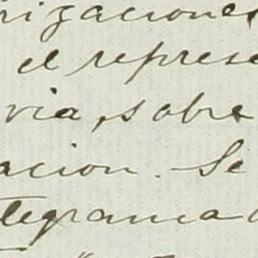 rizaciones
el represe
via, sobre
acion. Se
telegrama